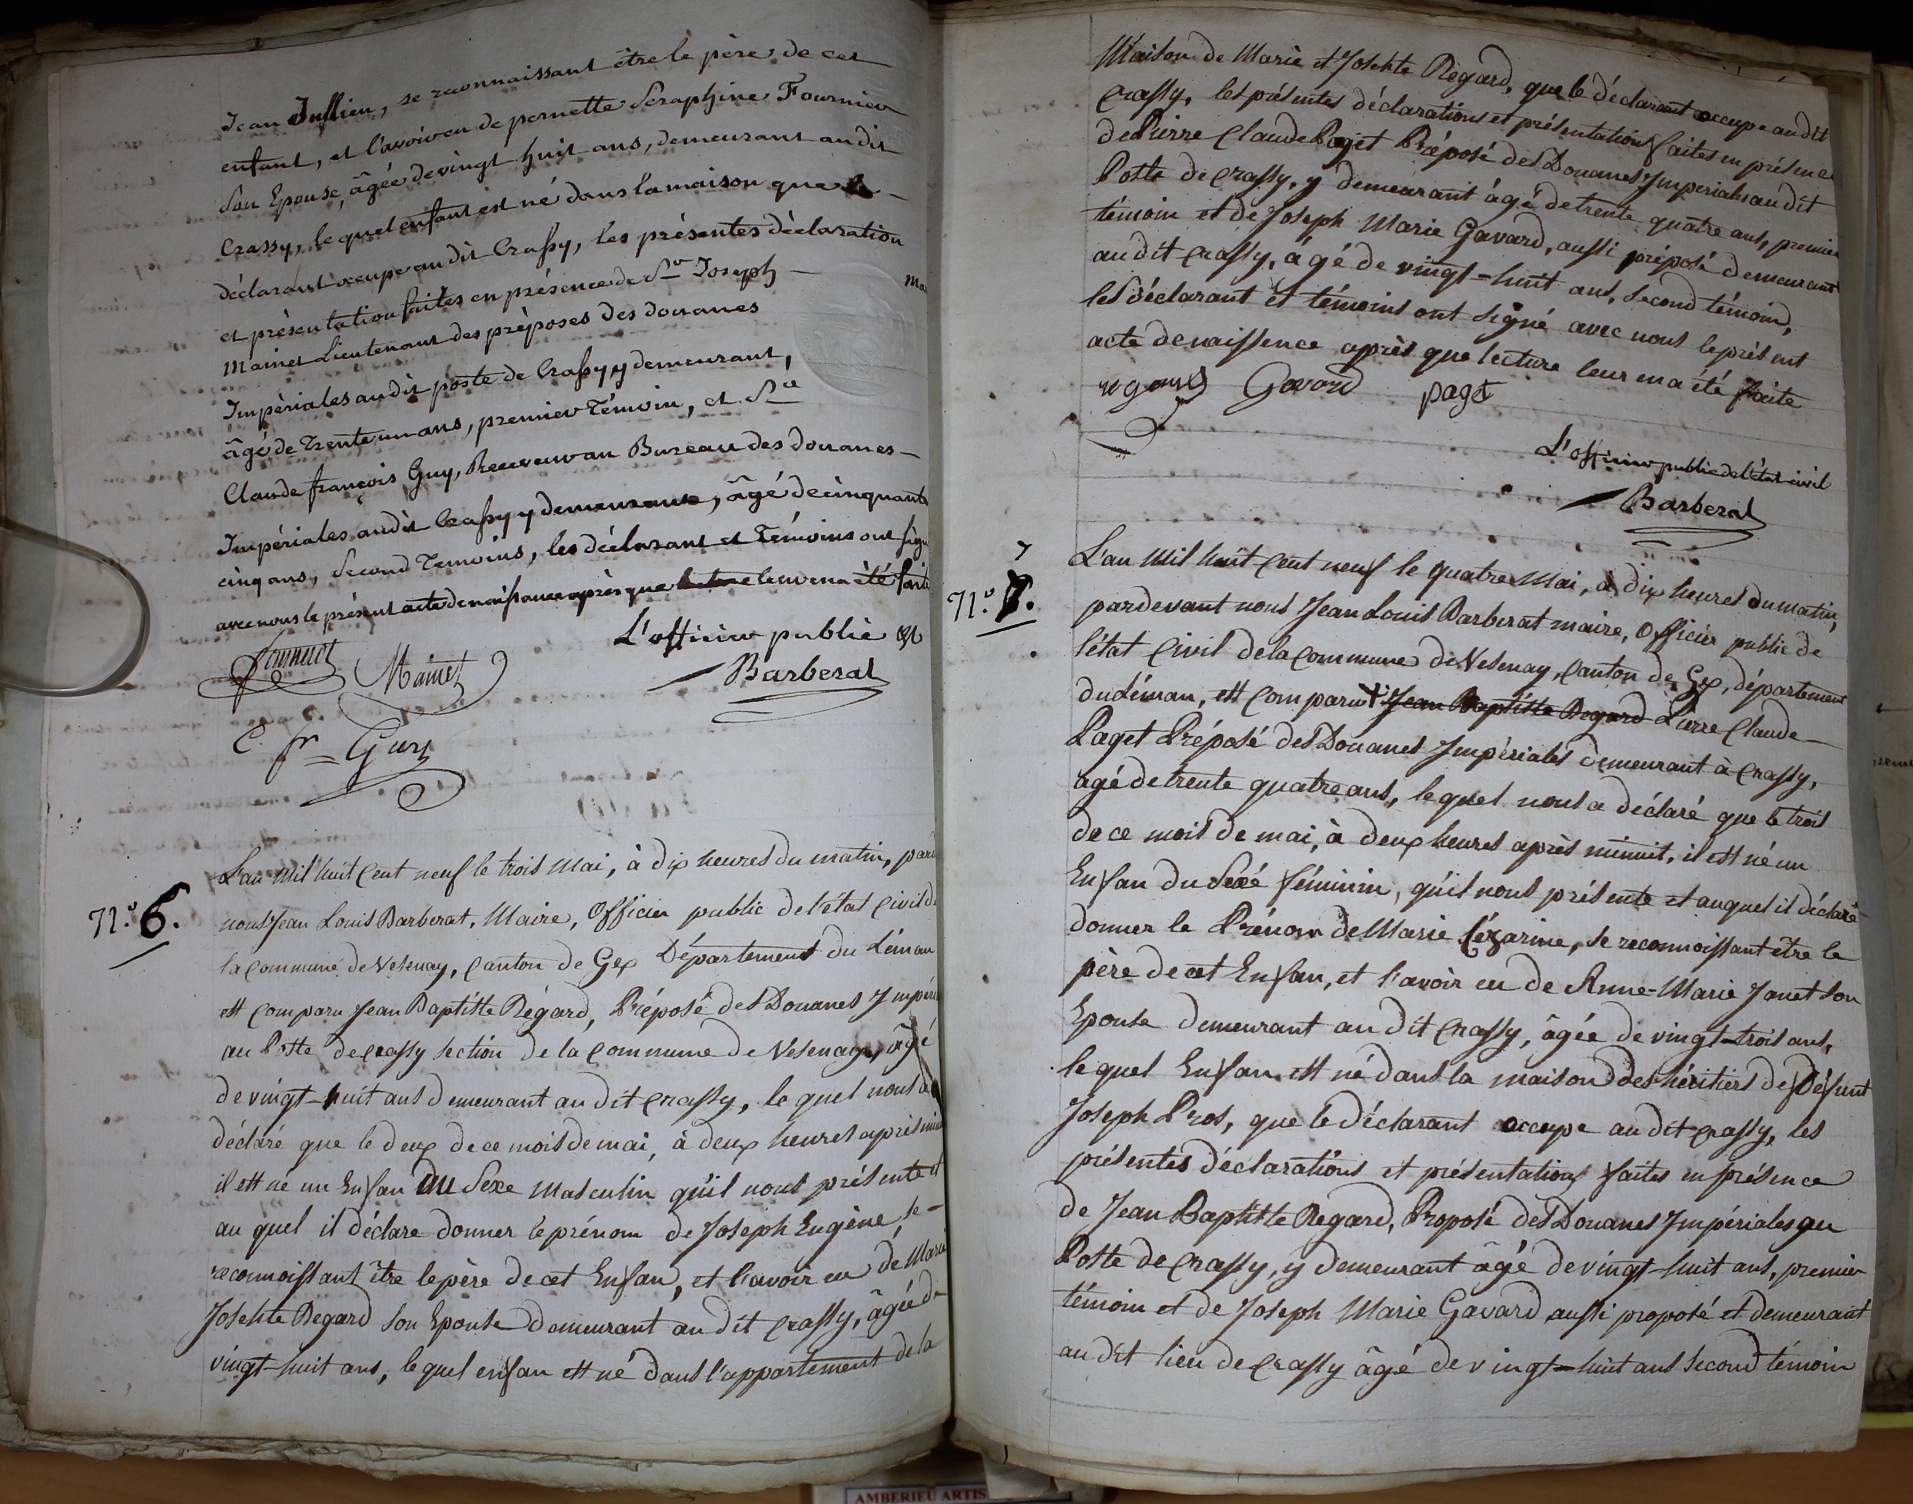 Jean Jullien, se reconnaissant être le père de cet
enfant, et l'avoir eu de pernette Seraphine Fournier
son Epouse, âgée de vingt huit ans, demeurant au dit
Crassy, le quel enfant est né dans la maison que le
déclarant occupe au dit Crassy, les présentes déclaration
et présentation faites en présence de Sr Joseph
Mainet Lieutenant des préposés des douanes
Impériales au dit poste de Crassy y demeurant,
âgé de trente un ans, premier témoin, et Sr
Claude françois Guy, Receveur au Bureau des douanes
Impériales au dit Crassy y demeurant, âgé de cinquante
cinq ans, second Temoins, les déclarant et Témoins ont signé
avec nous le présent acte de naissance après que lecture leur en a été faite
L'officier public
Mainet
Barberat
C. fr = Guy
N.º 6.
L'an Mil huit Cent neuf le trois Mai, à dix heures du matin, par
nous Jean Louis Barberat, Maire, Officier public de l'état Civil de
la Commune de Vesenay, Canton de Gex Département du Léman
est Comparu Jean Baptiste Régard, Préposé des Douanes Impéri
au Poste de Crassy section de la Commune de Vesenay, âgé
de vingt-huit ans demeurant au dit Crassy, le quel nous a
déclaré que le deux de ce mois de mai, à deux heures après min
il est né un Enfan du Sexe Masculin qu'il nous présente et
au quel il déclare donner le prénom de Joseph Eugène, se
reconnoissant être le père de cet Enfan, et l'avoir eu de Marie
Josehte Regard son Epouse demeurant au dit Crassy, âgée de
vingt-huit ans, le quel enfan est né dans l'appartement de la
Maison de Marie et Josehte Regard, que le déclarant occupe au dit
Crassy, les présentes déclarations et présentation faites en présence
de Pierre Claude Paget Préposé des Douanes Imperiales au dit
Poste de Crassy, y demeurant âgé de trente quatre ans, premier
témoin et de Joseph Marie Gavard, aussi préposé demeurant
au dit Crassy, âgé de vingt-huit ans, second témoin,
les déclarant et témoins ont signé avec nous le présent
acte de naissence après que lecture leur en a été faite
regard Gavard paget
L'officier public de l'état civil
Barberat
7
N.º 7.
L'an Mil huit Cent neuf le quatre Mai, à dix heures du matin,
pardevant nous Jean Louis Barberat maire, Officier public de
l'état Civil de la Commune de Vesenay, Canton de Gex, département
du Léman, est Comparu Jean Baptiste Regard Pierre Claude
Paget Préposé des Douanes Impériales demeurant à Crassy,
agé de trente quatre ans, lequel nous a déclaré que le trois
de ce mois de mai, à deux heures après minuit, il est né un
Enfan du Séxé féminin, qu'il nous présente et auquel il déclare
donner le Prénom de Marie Cézarine, se reconnoissant être le
père de cet Enfan, et l'avoir eu de Anne-Marie Janet son
Epouse demeurant au dit Crassy, âgée de vingt-trois ans,
le quel Enfan est né dans la maison des héritiers de Défunt
Joseph Pros, que le déclarant occupe au dit Crassy, les
présentes déclarations et présentations faites en présence
de Jean Baptiste Regard, Proposé des Douanes Impériales au
Poste de Crassy, y demeurant âgé de vingt-huit ans, premier
témoin et de Joseph Marie Gavard aussi proposé et demeurant
au dit lieu de Crassy âgé de vingt-huit ans second témoin
AMBERIEU ARTIS